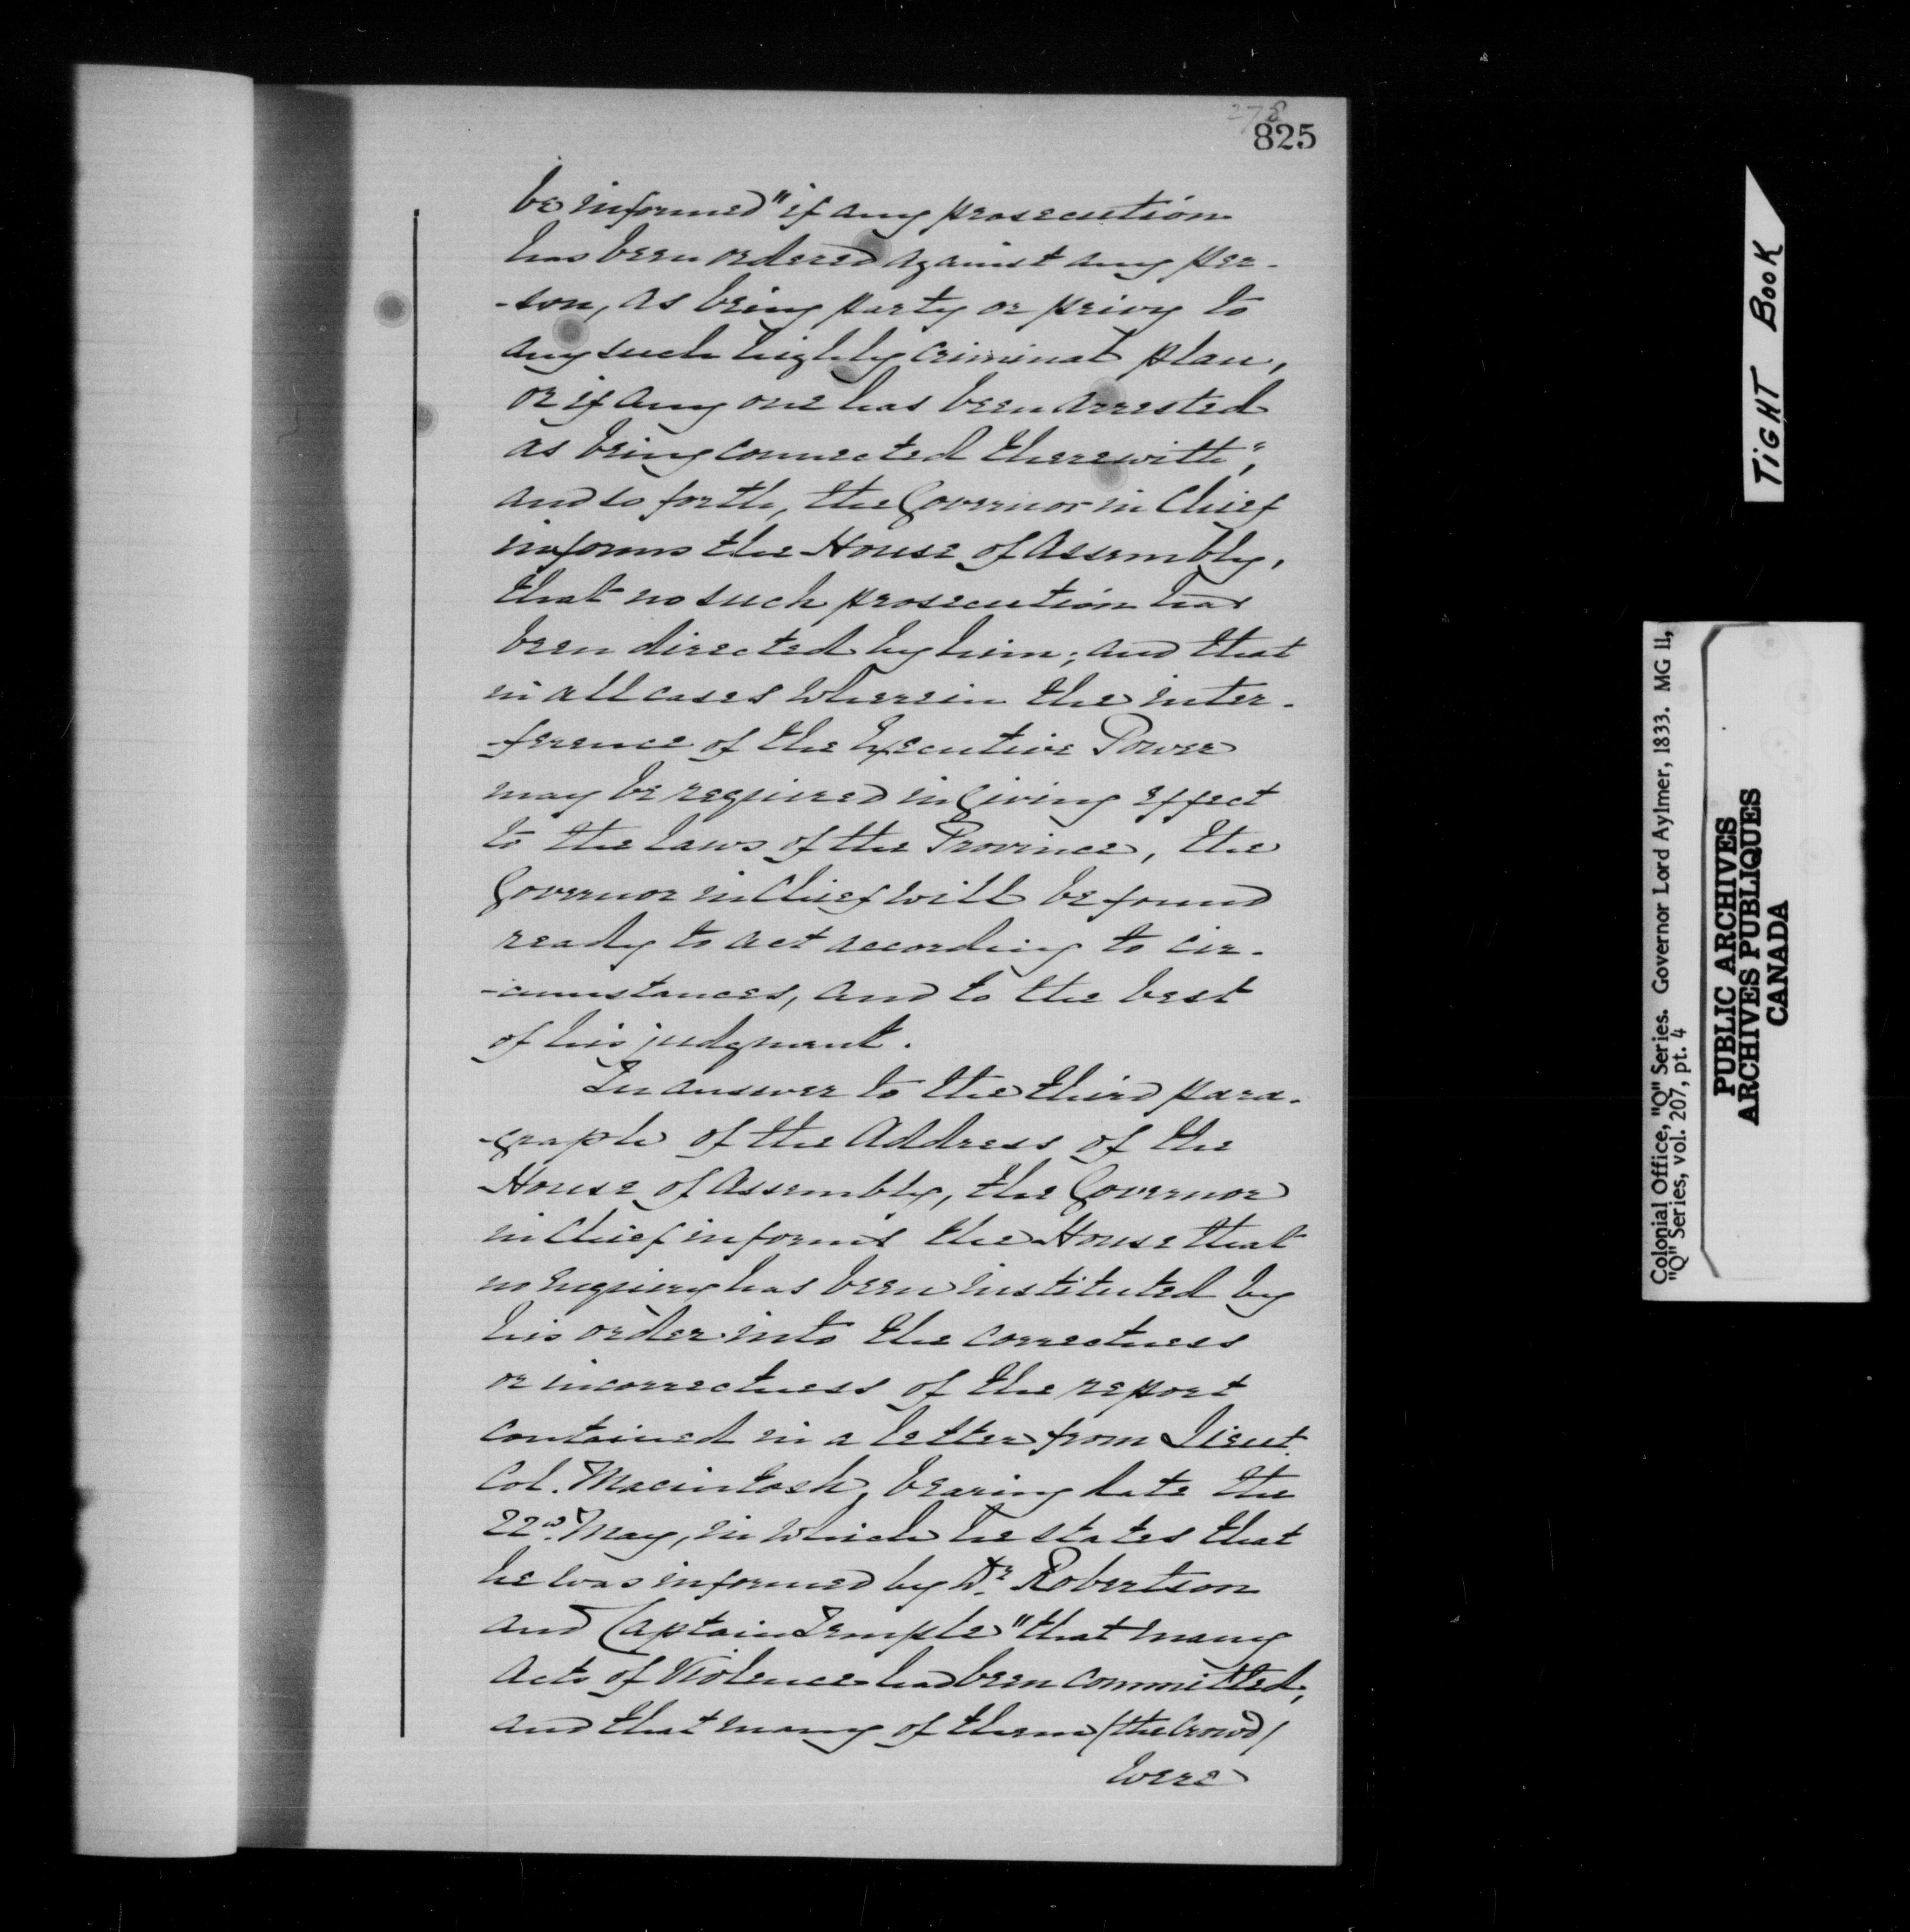 278
825
be informed "if any prosecution
has been ordered against any per-
-son, as being party or privy to
any such highly criminal plan,
or if any one has been arrested
as being connected therewith",
and so forth, the Governor in Chief
informs the House of Assembly,
that no such prosecution has
been directed by him; and that
in all cases wherein the inter-
-ference of the Executive Power
may be required in giving effect
to the laws of the Province, the
Governor in Chief will be found
ready to act according to cir-
-cumstances, and to the best
of his judgment.
In answer to the third para-
-graph of the Address of the
House of Assembly, the Governor
in Chief informs the House that
no enquiry has been instituted by
his order into the correctness
or incorrectness of the report
contained in a letter from Lieut.
Col. Macintosh, bearing date the
22nd. May, in which he states that
he was informed by Dr. Robertson
and Captain Temple "that many
acts of Violence had been committed,
and that many of them /the Crowd/
were
TIGHT BOOK
Colonial Office, "Q" Series. Governor Lord Aylmer, 1833. MG 11,
"Q" Series, vol. 207, pt. 4
PUBLIC ARCHIVES
ARCHIVES PUBLIQUES
CANADA